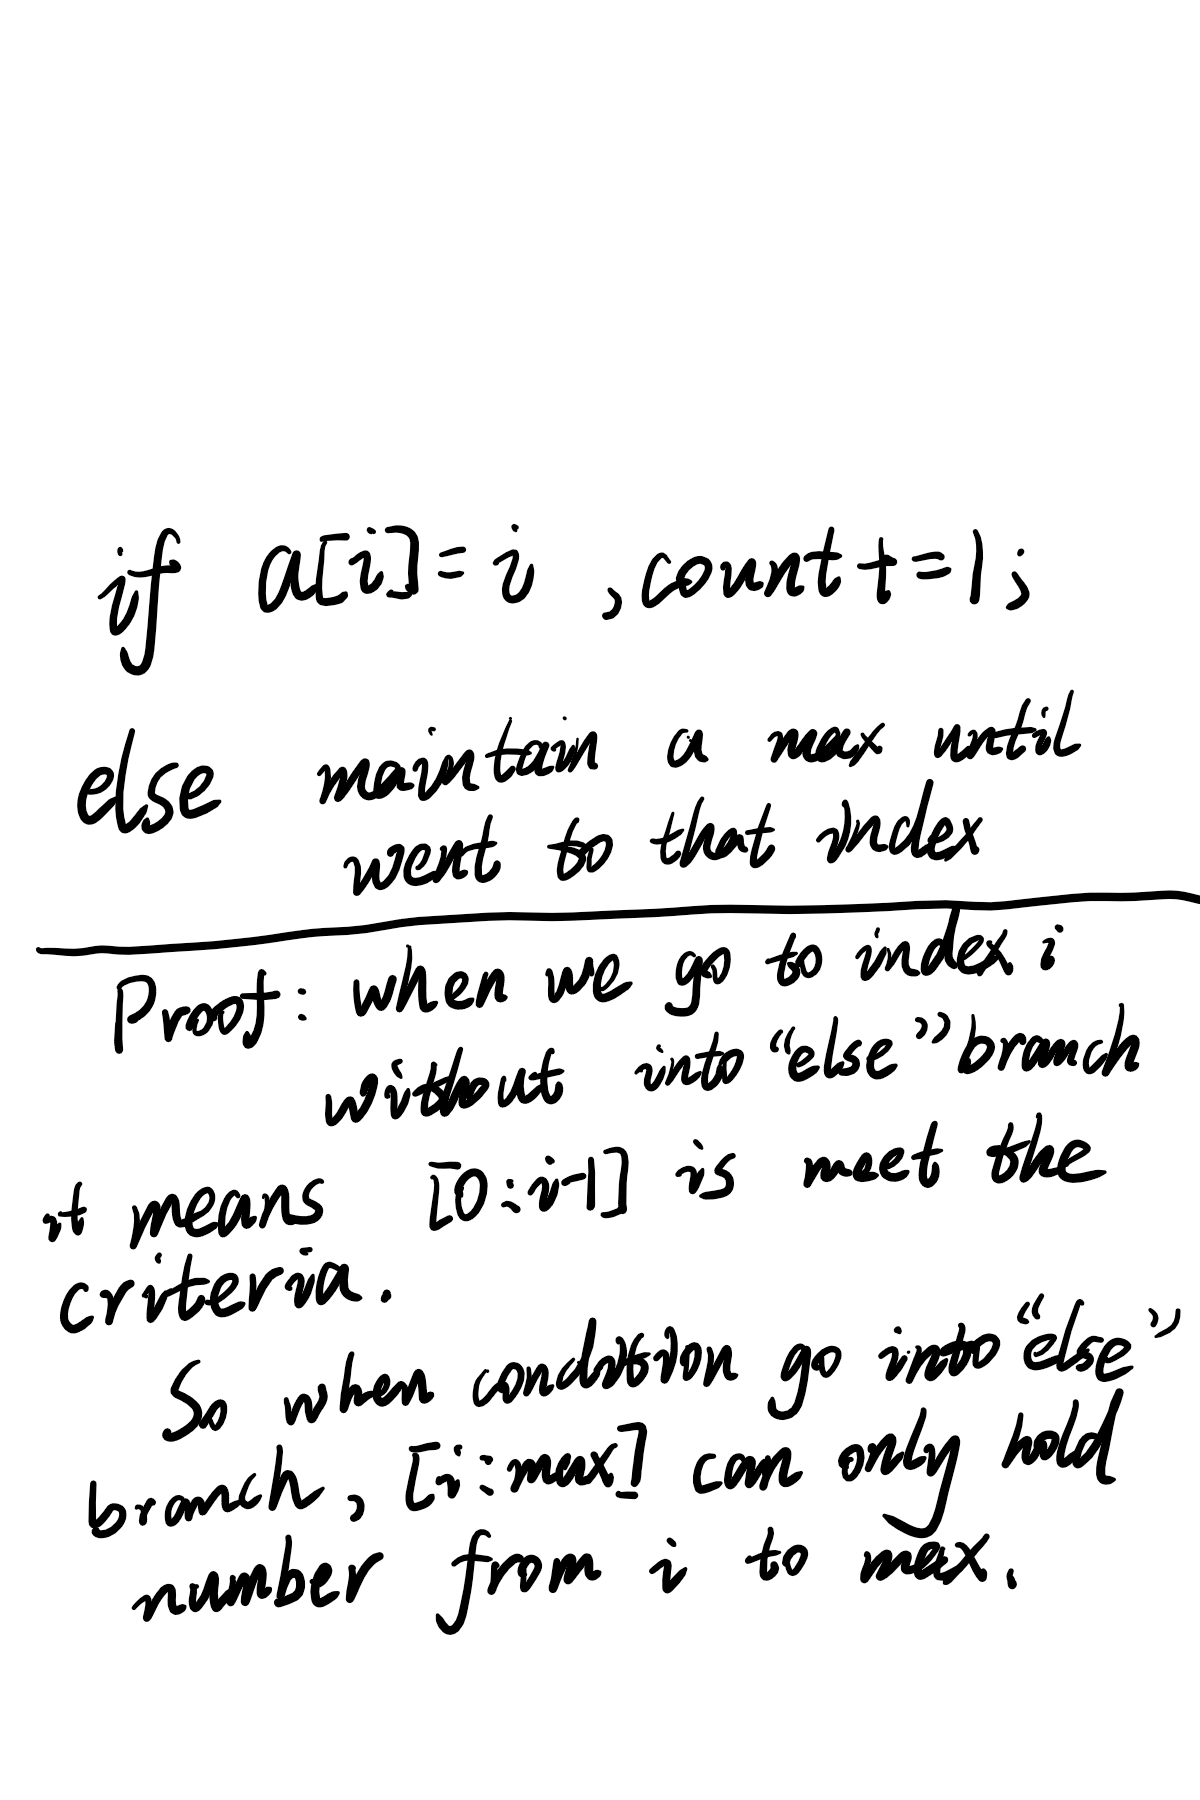 if a[i]=i ,count+=1;
else maintain a max until
went to that index
Proof: when we go to index i
without into "else" branch
it means [0:i-1] is meet the
criteria.
So when condition go into "else"
branch, [i:max] can only hold
number from i to max.